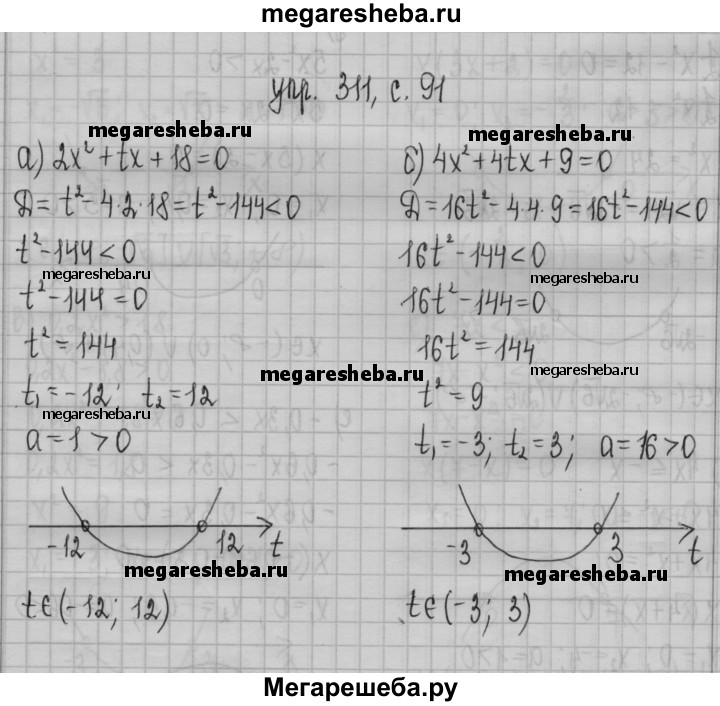 megaresheba.ru
упр. 311, с. 91
megaresheba.ru
megaresheba.ru
а) 2x² + tx + 18 = 0
Д = t² - 4·2·18 = t² - 144 < 0
t² - 144 < 0
megaresheba.ru
t² - 144 = 0
t² = 144
megaresheba.ru
t₁ = -12; t₂ = 12
megaresheba.ru
a = 1 > 0
-12 12 t
megaresheba.ru
t∈(-12; 12)
б) 4x² + 4tx + 9 = 0
Д = 16t² - 4·4·9 = 16t² - 144 < 0
16t² - 144 < 0
megaresheba.ru
16t² - 144 = 0
16t² = 144
megaresheba.ru
t² = 9
t₁ = -3; t₂ = 3; a = 16 > 0
-3 3 t
megaresheba.ru
t∈(-3; 3)
Мегарешеба.ру